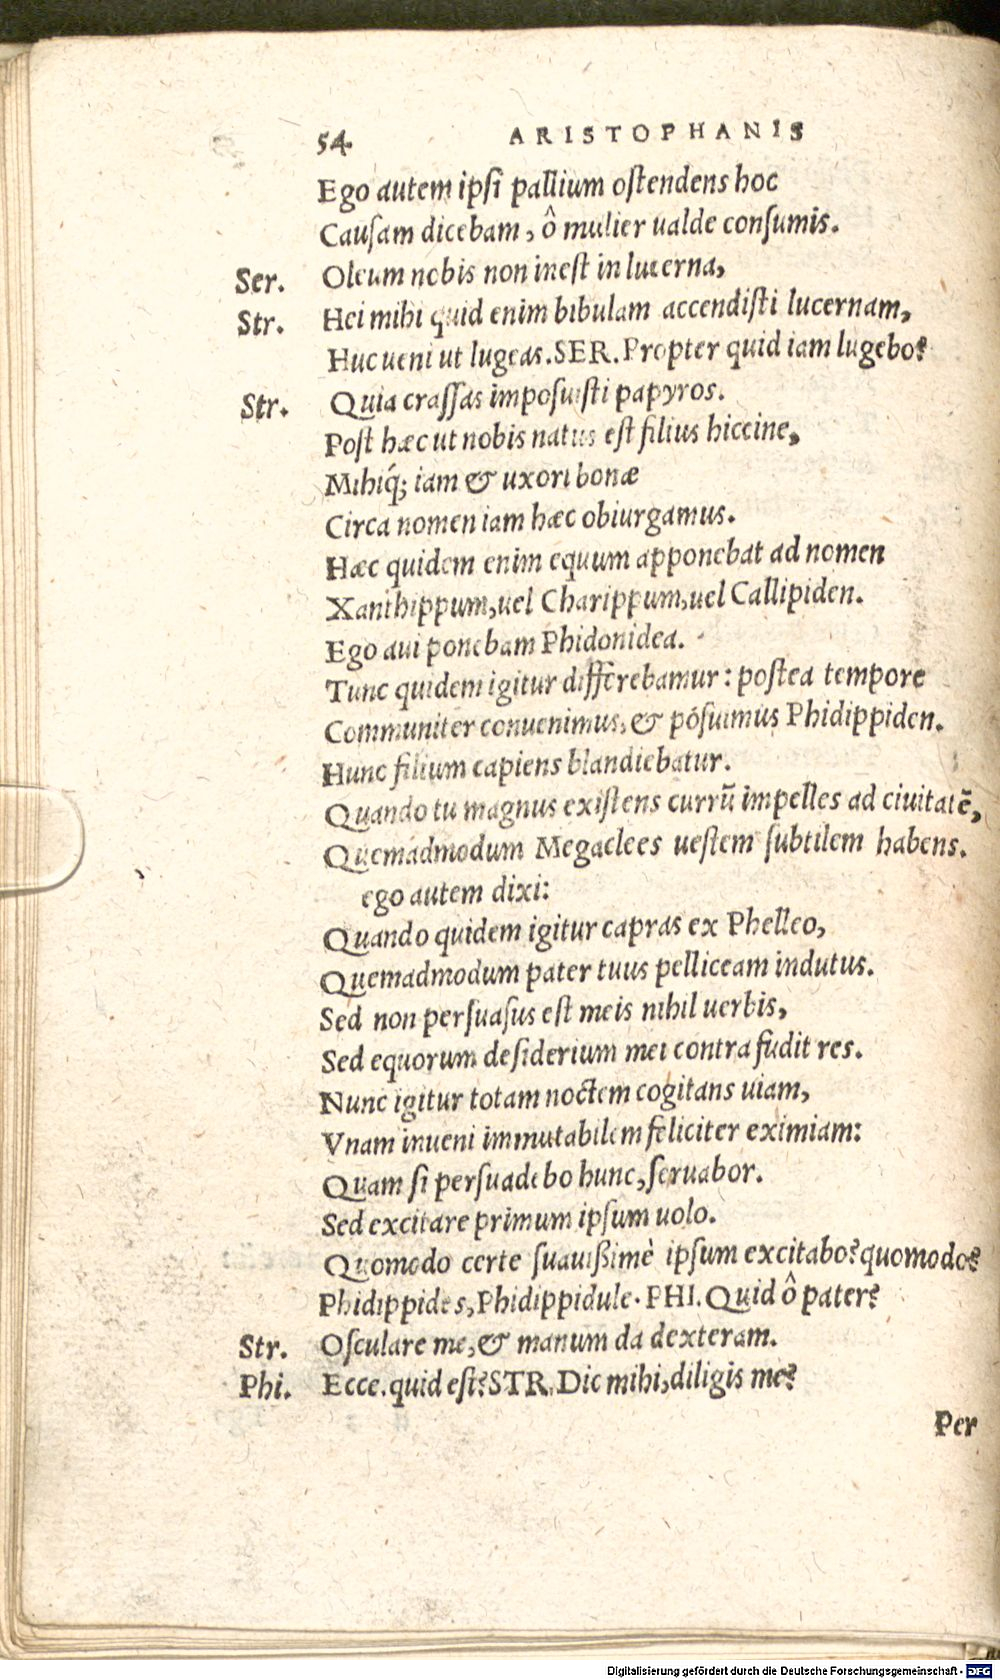 54. ARISTOPHANIS
Ego autem ipsi pallium ostendens hoc
Causam dicebam, ô mulier ualde consumis.
Ser. Oleum nobis non inest in lucerna,
Str. Hei mihi quid enim bibulam accendisti lucernam,
Huc ueni ut lugeas. SER. Propter quid iam lugebo?
Str. Quia crassas imposuisti papyros.
Post hæc ut nobis natus est filius hiccine,
Mihiq́; iam & uxori bonæ
Circa nomen iam hæc obiurgamus.
Hæc quidem enim equum apponebat ad nomen
Xanthippum, uel Charippum, uel Callipiden.
Ego aui ponebam Phidonidea.
Tunc quidem igitur differebamur: postea tempore
Communiter conuenimus, & pósuimus Phidippiden.
Hunc filium capiens blandiebatur.
Quando tu magnus existens currū impelles ad ciuitatē,
Quemadmodum Megaclees uestem subtilem habens.
ego autem dixi:
Quando quidem igitur capras ex Phelleo,
Quemadmodum pater tuus pelliceam indutus.
Sed non persuasus est meis nihil uerbis,
Sed equorum desiderium mei contra fudit res.
Nunc igitur totam noctem cogitans uiam,
Vnam inueni immutabilem feliciter eximiam:
Quam si persuadebo hunc, seruabor.
Sed excitare primum ipsum uolo.
Quomodo certe suauißimè ipsum excitabo? quomodo?
Phidippides, Phidippidule. PHI. Quid ô pater?
Str. Osculare me, & manum da dexteram.
Phi. Ecce. quid est? STR. Dic mihi, diligis me?
Per
Digitalisierung gefördert durch die Deutsche Forschungsgemeinschaft - DFG